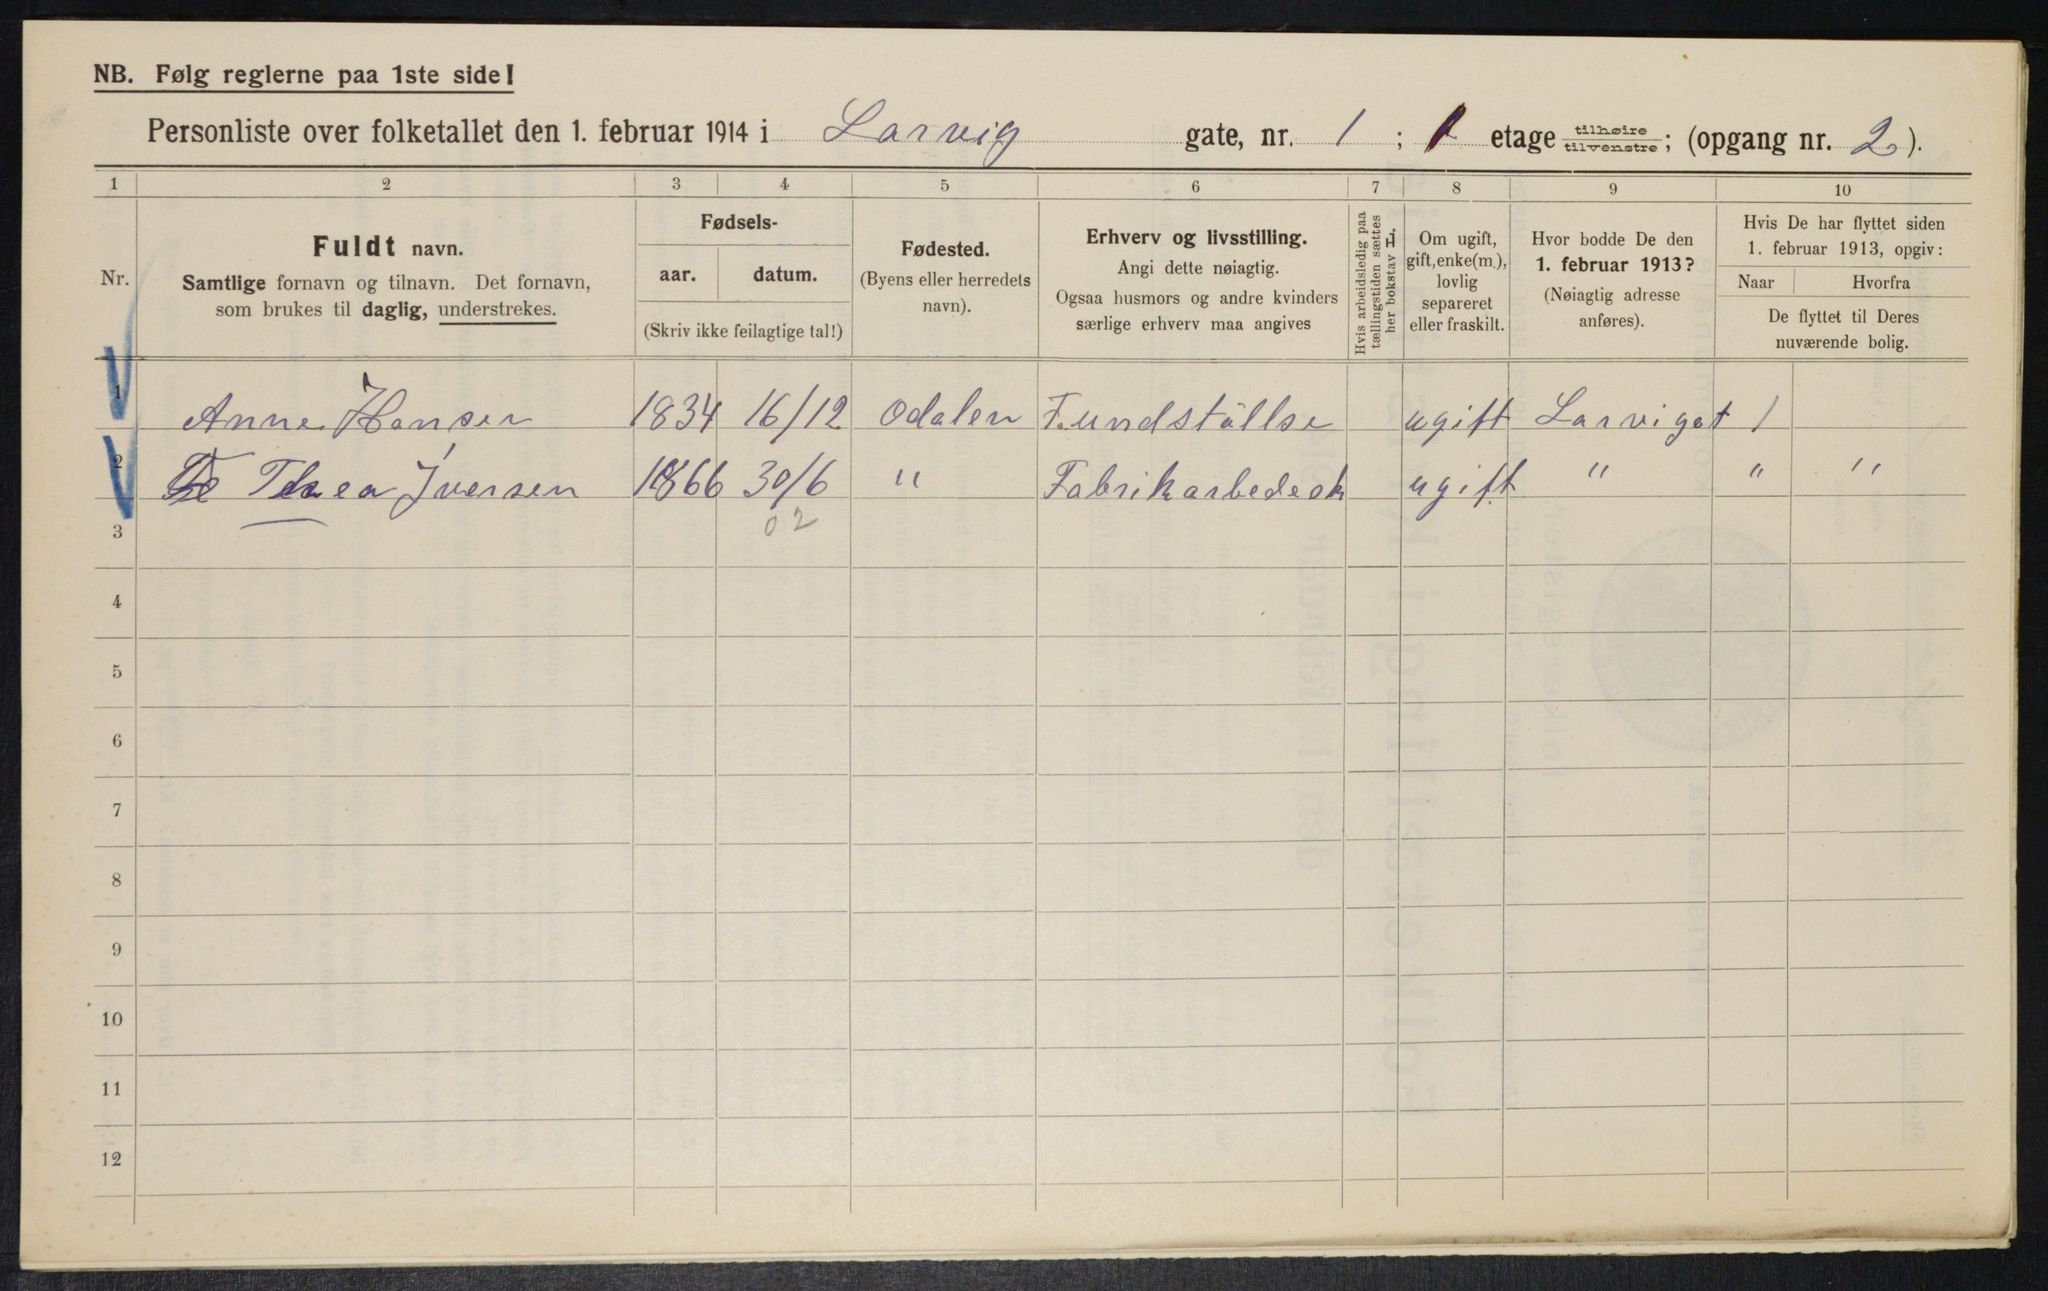 NB. Følg reglerne paa 1ste side!
Personliste over folketallet den 1. februar 1914 i Larvig gate, nr. 1; 1 etage tilhøire tilvenstre; (opgang nr. 2).
1 2 3 4 5 6 7 8 9 10
Nr.
Fuldt navn.
Samtlige fornavn og tilnavn. Det fornavn,
som brukes til daglig, understrekes.
Fødsels-
aar. datum.
(Skriv ikke feilagtige tal!)
Fødested.
(Byens eller herredets
navn).
Erhverv og livsstilling.
Angi dette nøiagtig.
Ogsaa husmors og andre kvinders
særlige erhverv maa angives
Hvis arbeidsledig paa
tællingstiden sættes
her bokstav L,
Om ugift,
gift, enke(m.),
lovlig
separeret
eller fraskilt.
Hvor bodde De den
1. februar 1913?
(Nøiagtig adresse
anføres).
Hvis De har flyttet siden
1. februar 1913, opgiv:
Naar Hvorfra
De flyttet til Deres
nuværende bolig.
1 Anne Hansen 1834 16/12 Odalen Fundställse ugift Larvigat 1
2 Thea Iversen 1866 30/6 " Fabrikarbedeok ugift " " "
02
3
4
5
6
7
8
9
10
11
12